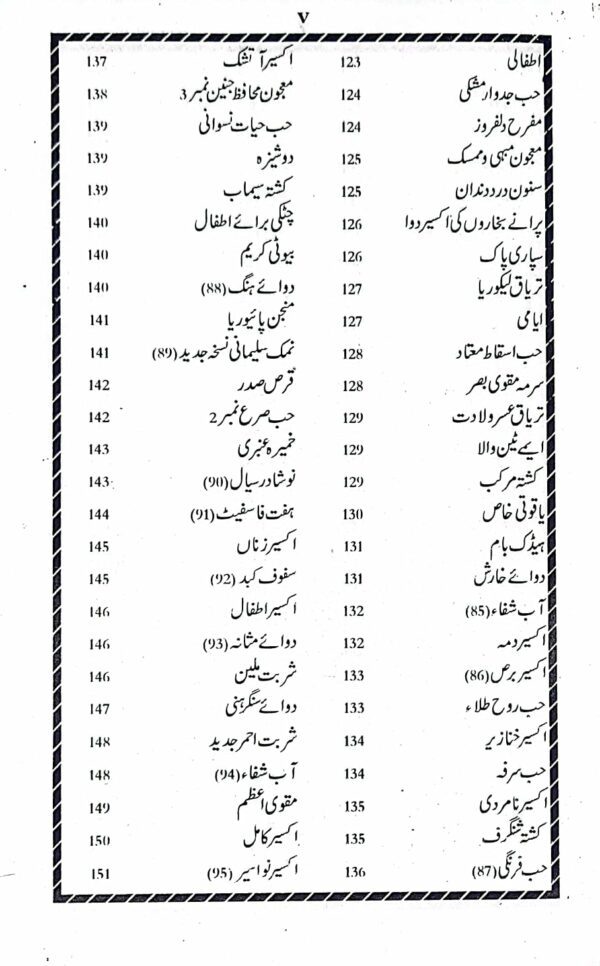 v
اطفالی 123
حب جدوار مشکی 124
مفرح دلفروز 124
معجون مبہی و ممسک 125
سنون درد دندان 125
پرانے بخاروں کی اکسیر دوا 126
سپاری پاک 126
تریاق لیکوریا 127
ایامی 127
حب اسقاط معتاد 128
سرمہ مقوی بصر 128
تریاق عسر ولادت 129
ایمے ٹین والا 129
کشتہ مرکب 129
یاقوتی خاص 130
ہیڈک بام 131
دوائے خارش 131
آب شفاء (85) 132
اکسیر دمہ 132
اکسیر برص (86) 133
حب روح طلاء 133
اکسیر خنازیر 134
حب سرفہ 134
اکسیر نامردی 135
کشتہ شنگرف 135
حب فرنگی (87) 136
اکسیر آتشک 137
معجون محافظ جنین نمبر 3 138
حب حیات نسوانی 139
دوشیزہ 139
کشتہ سیماب 139
چٹکی برائے اطفال 140
بیوٹی کریم 140
دوائے ہنگ (88) 140
منجن پائیوریا 141
نمک سلیمانی نسخہ جدید (89) 141
قرص صدر 142
حب صرع نمبر 2 142
خمیرہ عنبری 143
نوشادر سیال (90) 143
ہفت فاسفیٹ (91) 144
اکسیر زناں 145
سفوف کبد (92) 145
اکسیر اطفال 146
دوائے مثانہ (93) 146
شربت ملین 146
دوائے سنگرہنی 147
شربت احمر جدید 148
آب شفاء (94) 148
مقوی اعظم 149
اکسیر کامل 150
اکسیر نواسیر (95) 151